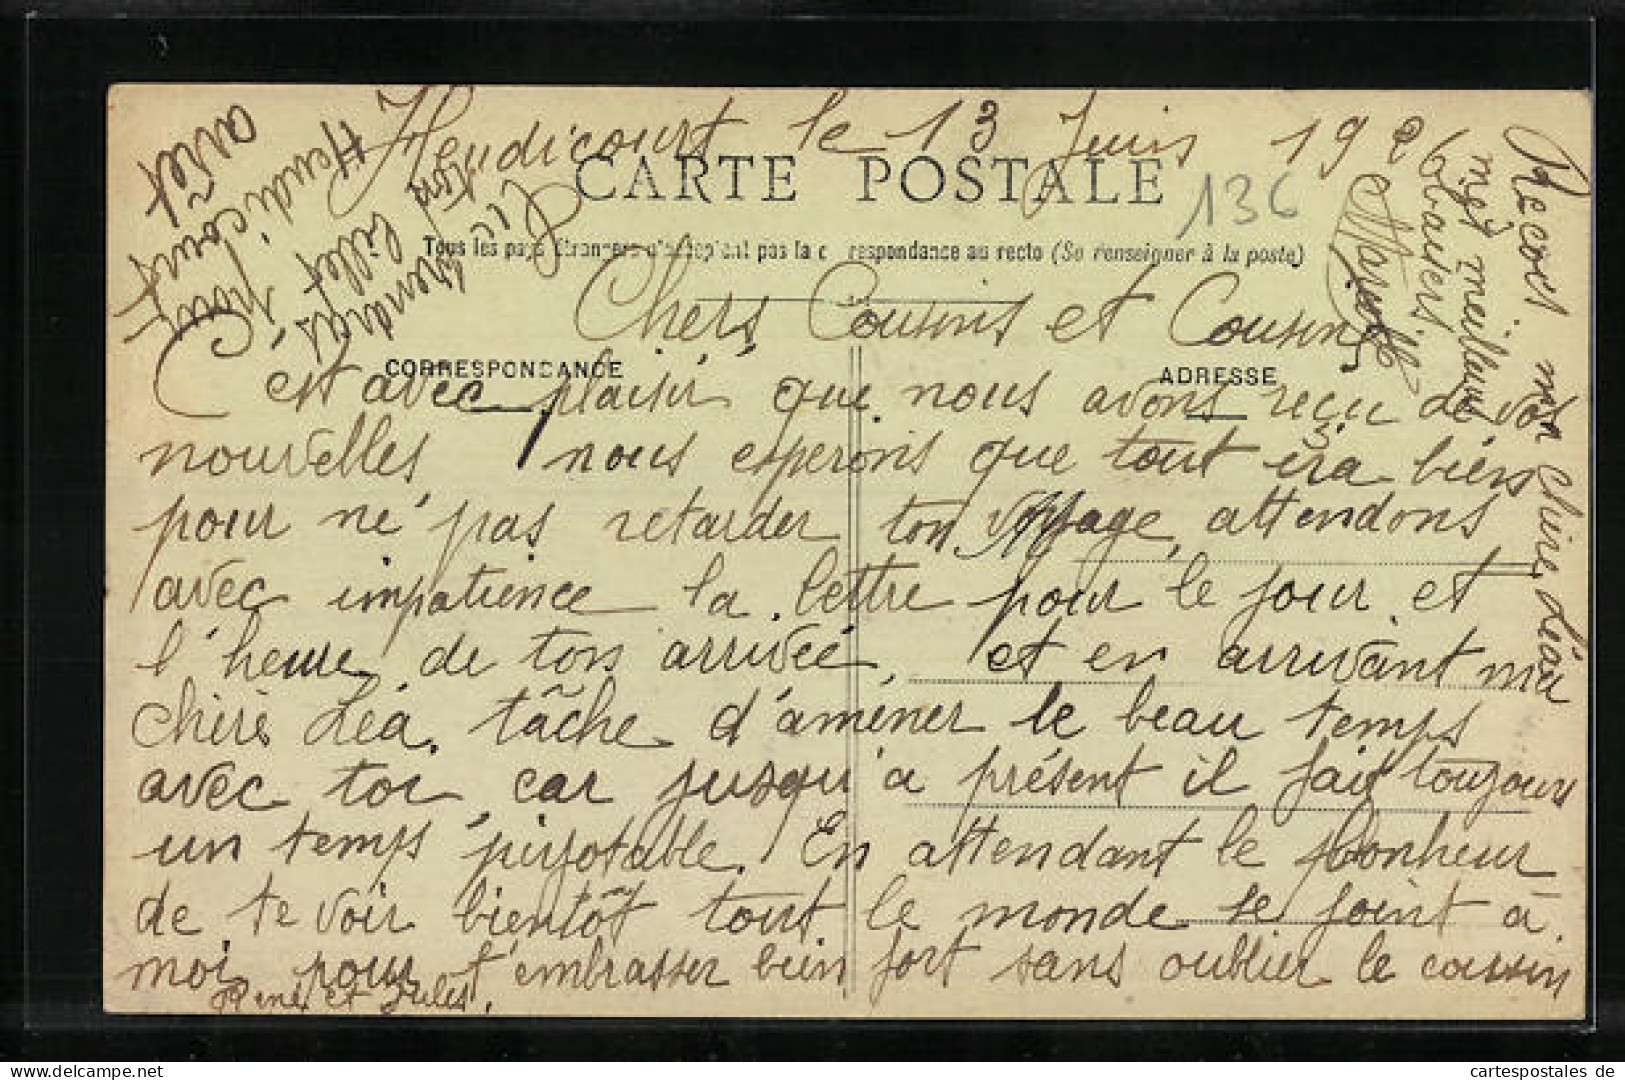 Heudicourt le 13 Juin 1926
CARTE POSTALE
136
Tous les pays étrangers n'acceptent pas la correspondance au recto (Se renseigner à la poste)
Chers Cousins et Cousines
CORRESPONDANCE
ADRESSE
C'est avec plaisir que nous avons reçu de vos
nouvelles, nous esperons que tout ira bien
pour ne pas retarder ton voyage, attendons
avec impatience la lettre pour le jour et
l'heure de ton arrivée, et en arrivant ma
chère Léa, tâche d'amener le beau temps
avec toi, car jusqu'à présent il fait toujours
un temps, pizotable. En attendant le bonheur
de te voir bientôt tout le monde se joint à
moi pour t'embrasser bien fort sans oublier le cousin
René et Jules.
Recois ma chère Léa
mes meilleurs
baisers.
Marcelle
Tu
prendras
ton billet
pour
Heudicourt
arrêt
cartespostales de